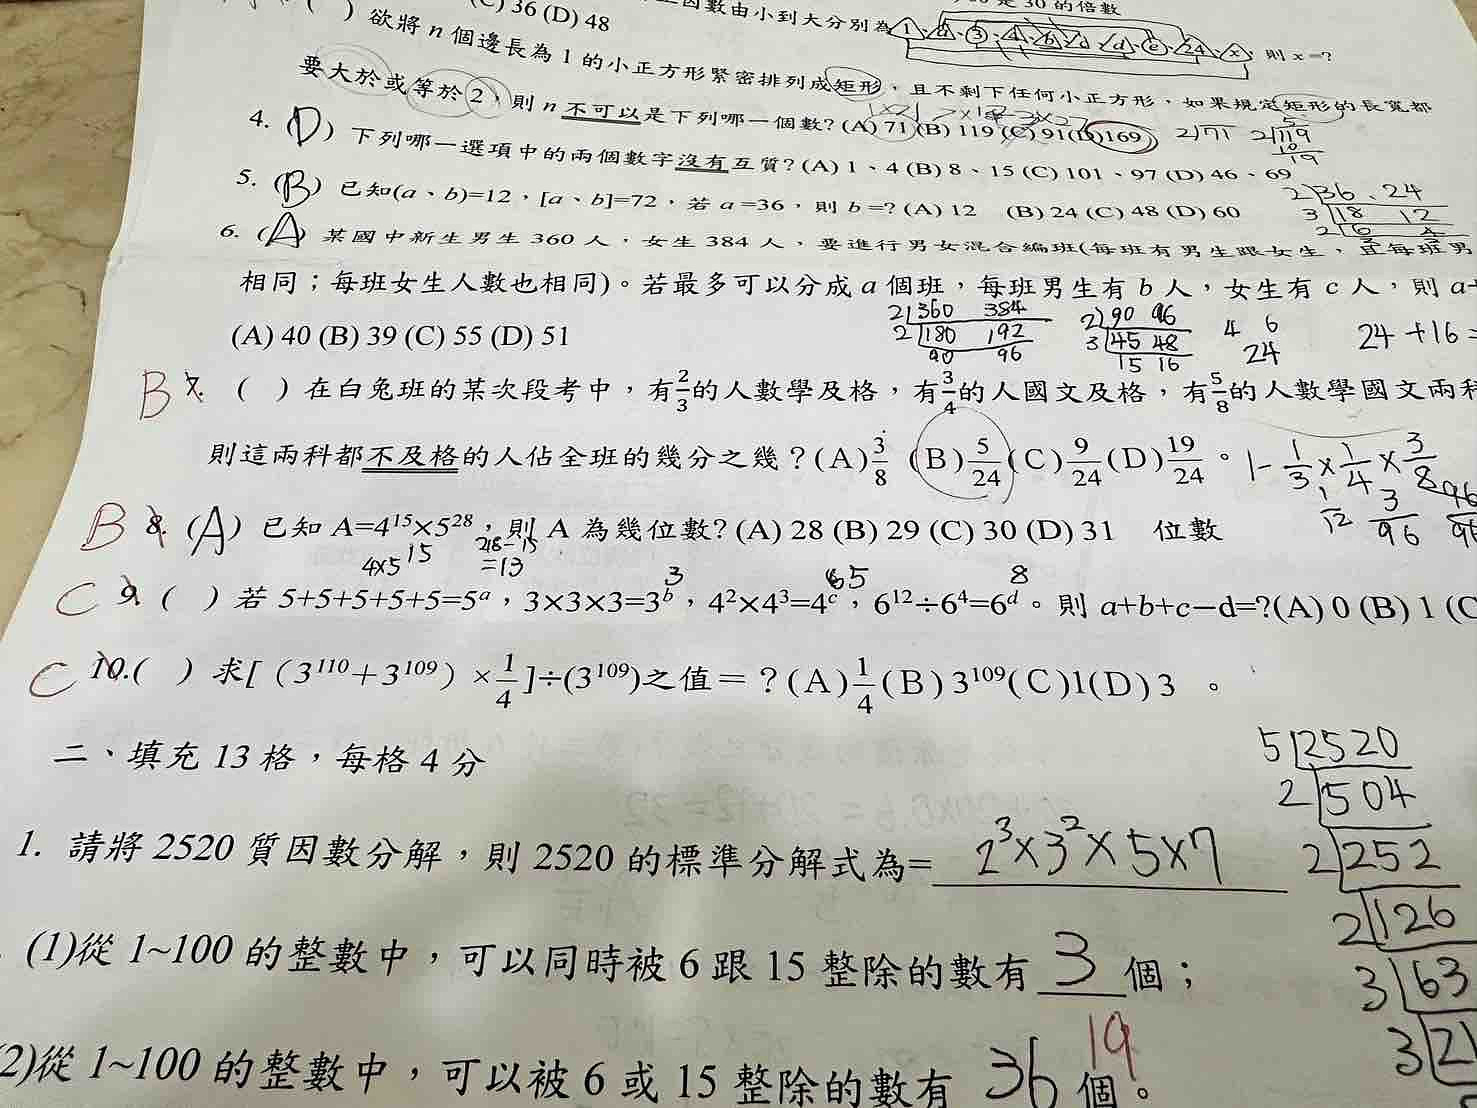 (C) 36 (D) 48
因數由小到大分別為 1
30 的倍數
則 x=?
( ) 欲將 n 個邊長為 1 的小正方形緊密排列成矩形，且不剩下任何小正方形，如果規定矩形的長寬都
要大於或等於 2，則 n 不可以是下列哪一個數? (A) 71 (B) 119 (C) 91 (D) 169
4. (D) 下列哪一選項中的兩個數字沒有互質? (A) 1、4 (B) 8、15 (C) 101、97 (D) 46、69
5. (B) 已知(a、b)=12，[a、b]=72，若 a=36，則 b=? (A) 12 (B) 24 (C) 48 (D) 60
2 36、24
3 18 12
2 6 4
6. (A) 某國中新生男生 360 人，女生 384 人，要進行男女混合編班(每班有男生跟女生，且每班男
相同；每班女生人數也相同)。若最多可以分成 a 個班，每班男生有 b 人，女生有 c 人，則 a+
(A) 40 (B) 39 (C) 55 (D) 51
2 360 384
2 180 192
90 96
2 90 96
3 45 48
15 16
4 6
24
24+16=
B 7. ( ) 在白兔班的某次段考中，有2/3的人數學及格，有3/4的人國文及格，有5/8的人數學國文兩科
則這兩科都不及格的人佔全班的幾分之幾？(A)3/8 (B)5/24 (C)9/24 (D)19/24。
1-1/3×1/4×3/8
1/12 3/96
B 8. (A) 已知 A=4¹⁵×5²⁸，則 A 為幾位數? (A) 28 (B) 29 (C) 30 (D) 31 位數
4×5¹⁵ 28-15
=13
C 9. ( ) 若 5+5+5+5+5=5ᵃ，3×3×3=3ᵇ，4²×4³=4ᶜ，6¹²÷6⁴=6ᵈ。則 a+b+c−d=?(A) 0 (B) 1 (C
3 5 8
C 10.( ) 求[（3¹¹⁰+3¹⁰⁹）×1/4]÷(3¹⁰⁹)之值＝？(A)1/4(B)3¹⁰⁹(C)1(D)3 。
二、填充 13 格，每格 4 分
1. 請將 2520 質因數分解，則 2520 的標準分解式為= 2³×3²×5×7
5 2520
2 504
2 252
2 126
3 63
3 21
(1)從 1~100 的整數中，可以同時被 6 跟 15 整除的數有 3 個；
2)從 1~100 的整數中，可以被 6 或 15 整除的數有 36 個。
19